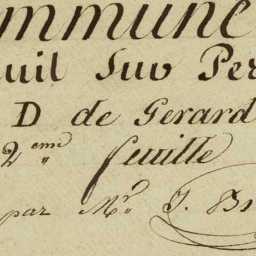 ommune
uil Sur Per
D de Gerard
2eme feuille
par Mr. J. Br